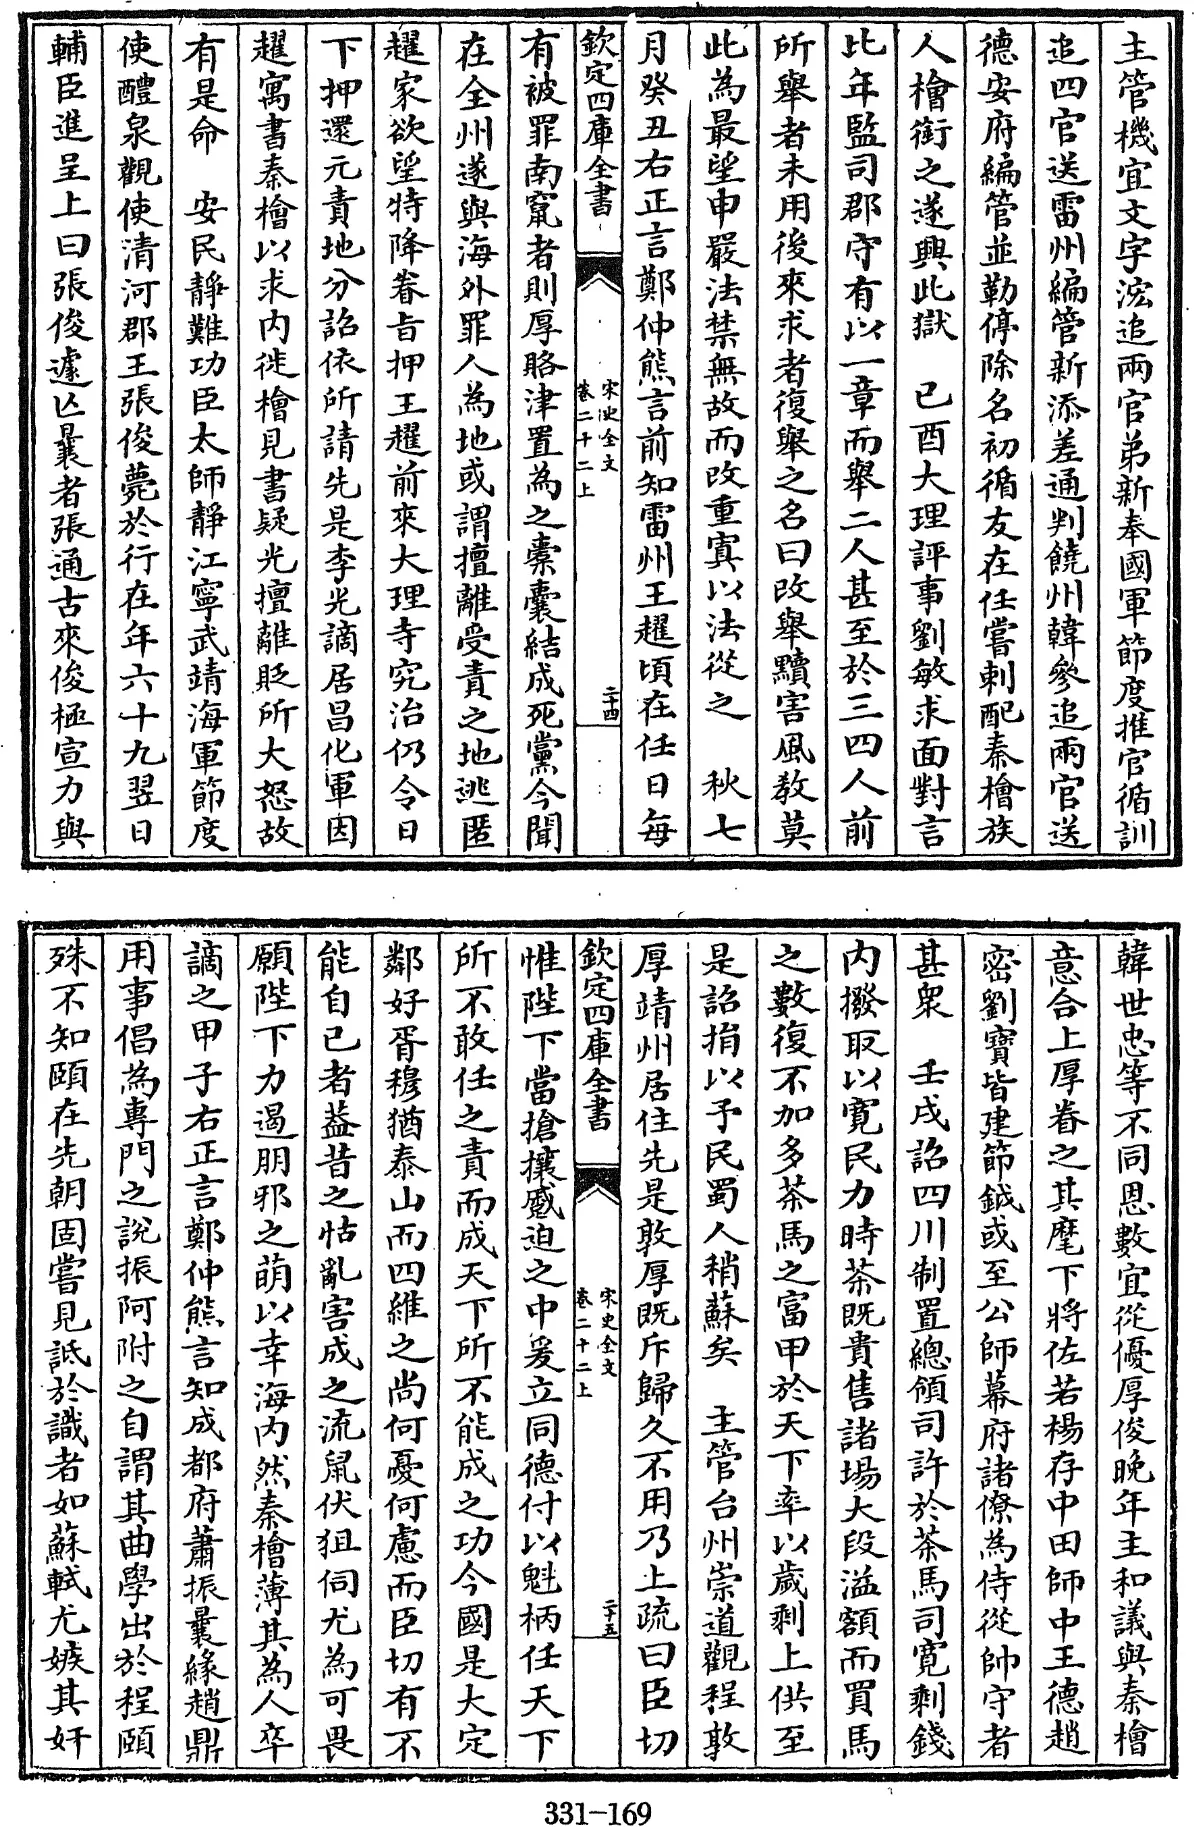 主管機宜文字浤追兩官弟新奉國軍節度推官循訓
追四官送雷州編管新添差通判饒州韓參追兩官送
德安府編管並勒停除名初循友在任嘗刺配秦檜族
人檜銜之遂興此獄　已酉大理評事劉敏求面對言
比年監司郡守有以一章而舉二人甚至於三四人前
所舉者未用後來求者復舉之名曰改舉黷害風教莫
此為最望申嚴法禁無故而改重寘以法從之　秋七
月癸丑右正言鄭仲熊言前知雷州王趯頃在任日每
欽定四庫全書
宋史全文
卷二十二上
二十四
有被罪南竄者則厚賂津置為之橐囊結成死黨今聞
在全州遂與海外罪人為地或謂擅離受責之地逃匿
趯家欲望特降眷旨押王趯前來大理寺究治仍令日
下押還元責地分詔依所請先是李光謫居昌化軍因
趯寓書秦檜以求内徙檜見書疑光擅離貶所大怒故
有是命　安民靜難功臣太師靜江寧武靖海軍節度
使醴泉觀使清河郡王張俊薨於行在年六十九翌日
輔臣進呈上曰張俊遽亾曩者張通古來俊極宣力與
韓世忠等不同恩數宜從優厚俊晚年主和議與秦檜
意合上厚眷之其麾下將佐若楊存中田師中王德趙
密劉寶皆建節鉞或至公師幕府諸僚為侍從帥守者
甚衆　壬戌詔四川制置總領司許於茶馬司寛剩錢
内撥取以寛民力時茶既貴售諸場大段溢額而買馬
之數復不加多茶馬之富甲於天下率以歲剩上供至
是詔捐以予民蜀人稍蘇矣　主管台州崇道觀程敦
厚靖州居住先是敦厚既斥歸久不用乃上疏曰臣切
欽定四庫全書
宋史全文
卷二十二上
二十五
惟陛下當搶攘蹙迫之中爰立同德付以魁柄任天下
所不敢任之責而成天下所不能成之功今國是大定
鄰好胥穆猶泰山而四維之尚何憂何慮而臣切有不
能自已者葢昔之怙亂害成之流鼠伏狙伺尤為可畏
願陛下力遏朋邪之萌以幸海内然秦檜薄其為人卒
謫之甲子右正言鄭仲熊言知成都府蕭振曩緣趙鼎
用事倡為專門之說振阿附之自謂其曲學出於程頤
殊不知頤在先朝固嘗見詆於識者如蘇軾尤嫉其奸
331-169